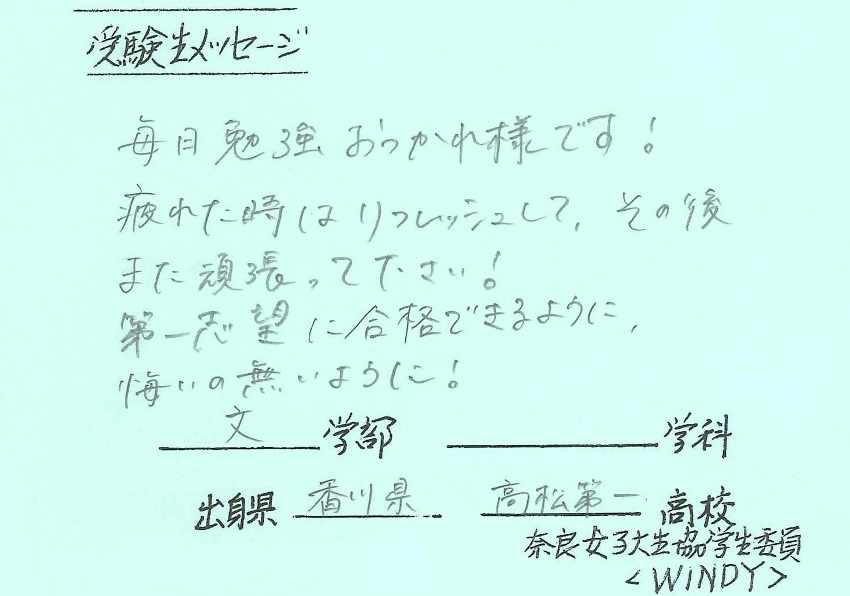 受験生メッセージ
毎日勉強おつかれ様です！
疲れた時はリフレッシュして、その後
また頑張って下さい！
第一志望に合格できるように、
悔いの無いように！
文学部 学科
出身県 香川県 高松第一高校
奈良女子大生協学生委員
<WINDY>